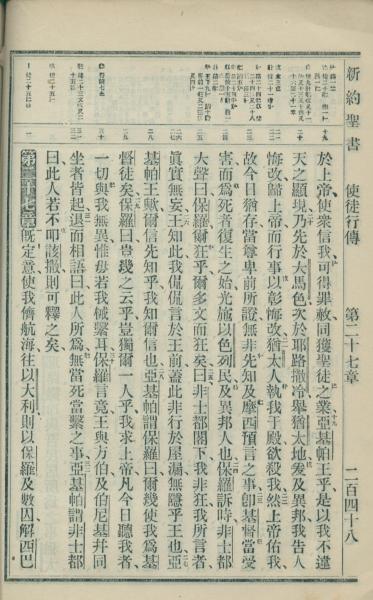 新約聖書
使徒行傳
第二十七章
二百四十八
於上帝使衆信我可得罪赦同獲聖徒之業亞基帕王乎是以我不違
天之顯現乃先於大馬色次於耶路撒冷舉猶太地爰及異邦我告人
悔改歸上帝而行事以彰悔改猶太人執我于殿欲殺我然上帝佑我
故今日猶存當尊卑前所證無非先知及摩西預言之事卽基督當受
害而爲死者復生之始光施以色列民及異邦人也保羅訴時非士都
大聲曰保羅爾狂乎爾多文而狂矣曰非士都閣下我非狂我所言者
眞實無妄王知此我侃侃言於王前蓋此非行於屋漏無隱乎王也亞
基帕王歟爾信先知乎我知爾信也亞基帕謂保羅曰爾幾使我爲基
督徒矣保羅曰豈幾之云乎豈獨爾一人乎我求上帝凡今日聽我者
一切與我無異惟毋若我械繫耳保羅言竟王與方伯及伯尼基并同
坐者皆起退而相語曰此人所爲無當死當繫之事亞基帕謂非士都
曰此人若不叩該撒則可釋之矣
第二十七章旣定意使我儕航海往以大利則以保羅及數囚解西巴